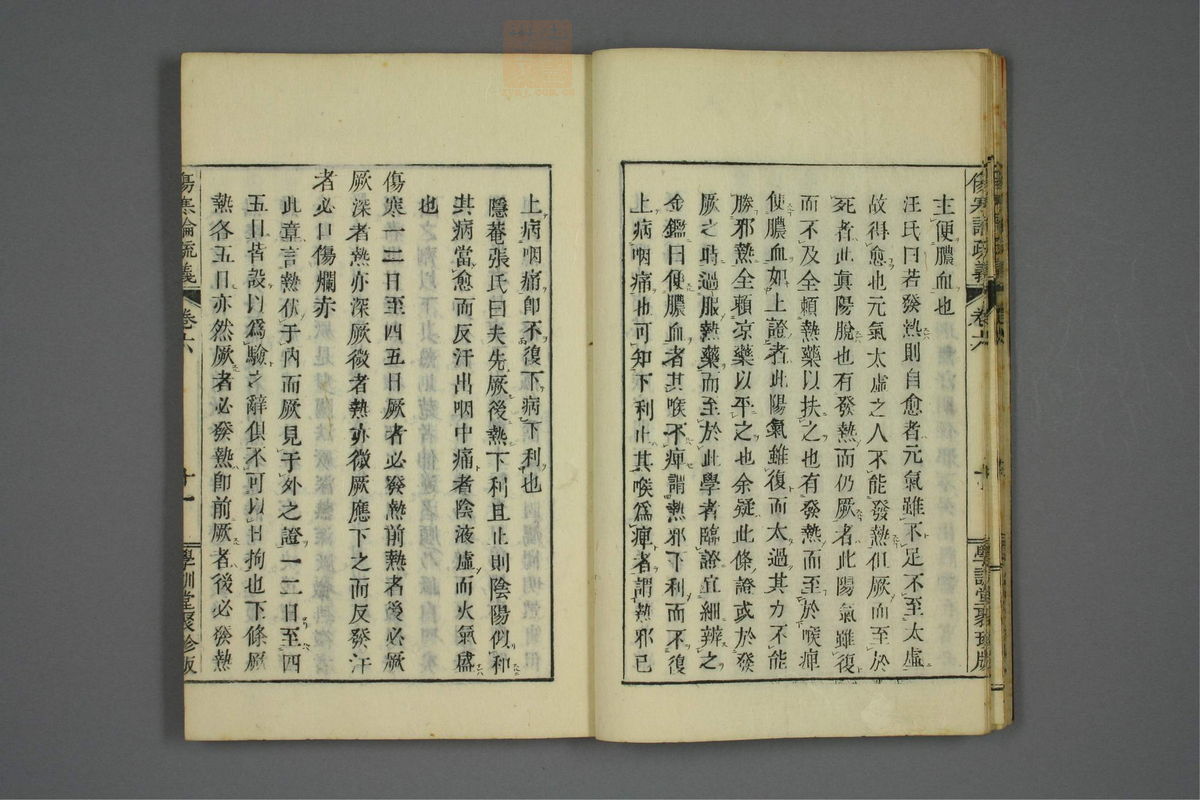 主便膿血也
汪氏曰若發熱則自愈者元氣雖不足不至太虛
故得愈也元氣太虛之人不能發熱但厥而至於
死者此真陽脫也有發熱而仍厥者此陽氣雖復
而不及全賴熱藥以扶之也有發熱而至於喉痺
便膿血如上證者此陽氣雖復而太過其力不能
勝邪熱全賴凉藥以平之也余疑此條證或於發
厥之時過服熱藥而至於此學者臨證宜細辨之
金鑑曰便膿血者其喉不痺謂熱邪下利而不復
上病咽痛也可知下利止其喉爲痺者謂熱邪已
傷寒論疏義
卷六
十
學訓堂聚珍版
上病咽痛卽不復下病下利也
隱菴張氏曰夫先厥後熱下利且止則陰陽似和
其病當愈而反汗出咽中痛者陰液虛而火氣盛
也
傷寒一二日至四五日厥者必發熱前熱者後必厥
厥深者熱亦深厥微者熱亦微厥應下之而反發汗
者必口傷爛赤
此章言熱伏于內而厥見于外之證一二日至四
五日皆設以爲驗之辭俱不可以日拘也下條厥
熱各五日亦然厥者必發熱卽前厥者後必發熱
傷寒論疏義
卷六
十一
學訓堂聚珍版